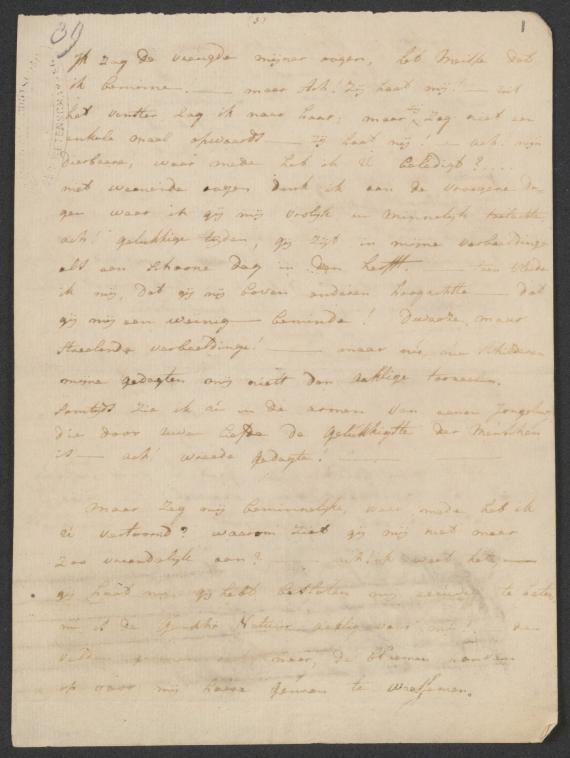 39
(3)
1
Ik zag de vreugde mijner oogen, het Meisje dat
ik beminne. — maar Ach! Zij haat mij! — uit
het venster zag ik naar haar; maar zij zag niet een
enkele maal opwaards — zij haat mij! — ach mijn
dierbaare, waar mede heb ik U beledigt? ....
met weenende oogen denk ik aan de vroegere da-
gen waar in gij mij vrolijk en minnelijk
ach! gelukkige tijden, gij zijt in mijne verbeeldinge
als een schoone dag in den herfst. — toen
ik mij, dat gij mij boven anderen hoogachtte — dat
gij mij een weinig beminde! Dwaaze, maar
streelende verbeeldinge! — maar nu, nu schilderen
mijne gedagten mij niets dan aaklige
Somtijds zie ik U in de armen van eenen Jongeling
die door uwe liefde de gelukkigste der Menschen
is — ach! wreede gedagte! —
Maar Zeg mij beminnelijke, waar mede heb ik
U vertoornd? waarom ziet gij mij niet meer
zoo vriendelijk aan? ach! ik weet het —
gij haat mij, gij hebt besloten mij eeuwig te
mij is de Natuur voor mij!
maar, de bloemen
op voor mij haare geuren te